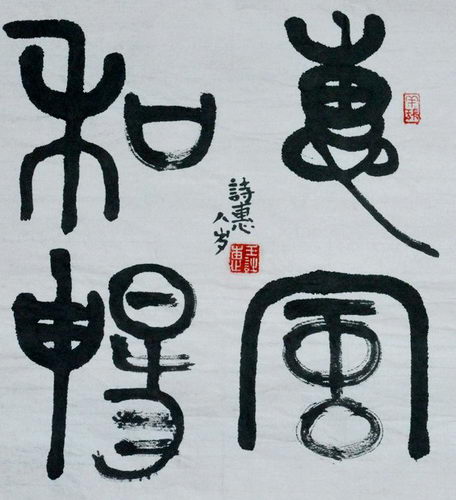 惠風
和暢
詩惠
八岁